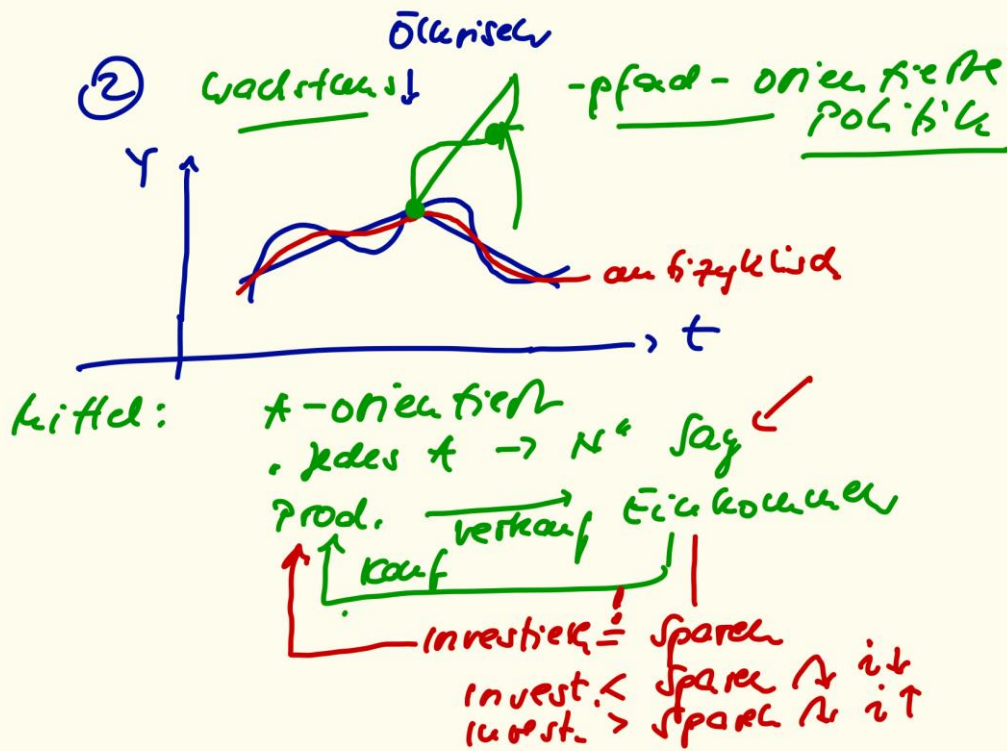 Ölkrisen
② Wachstums ↓ -pfad-orientierte
Politik
Y
antizyklisch
t
Mittel: A-orientiert
"jedes A → N" Say
Prod. verkauf Einkommen
Kauf
investieren = sparen
invest. < sparen ↷ i↓
invest. > sparen ↷ i↑